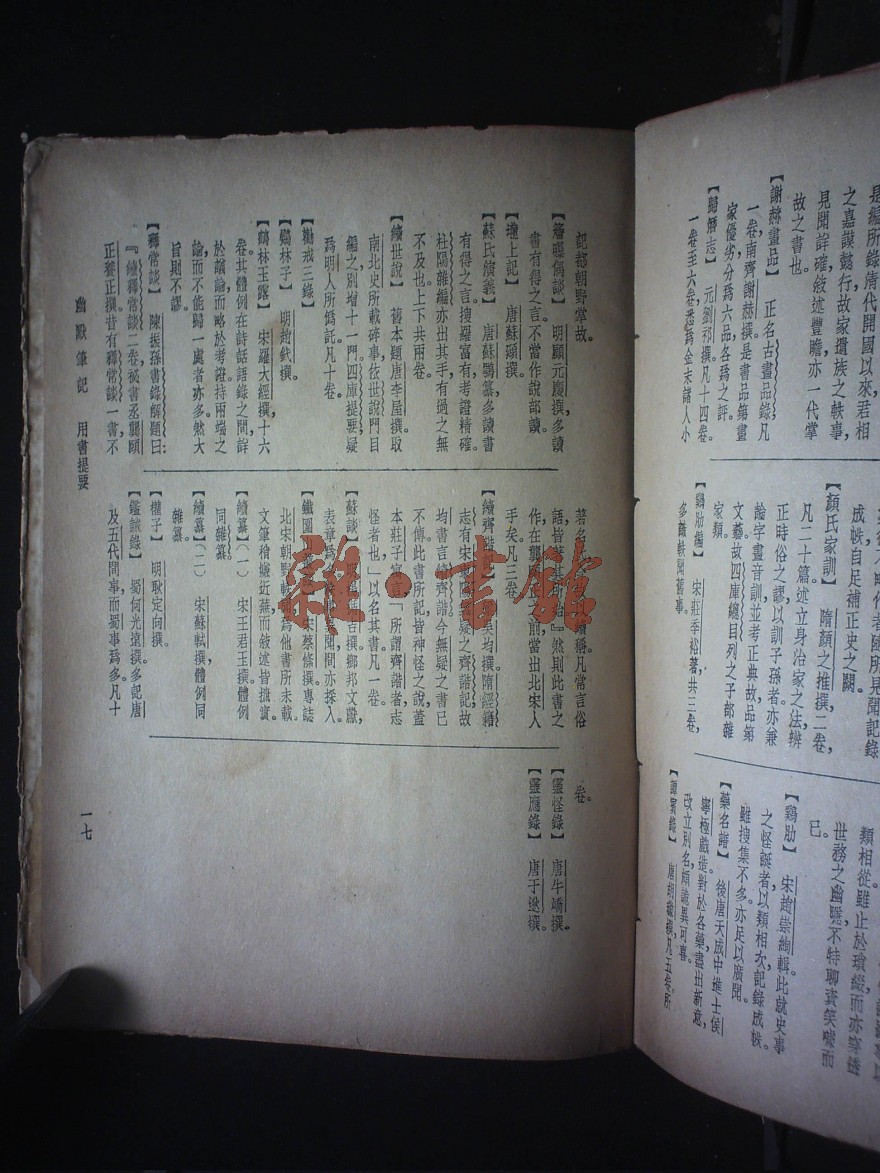 是編所錄清代開國以來君相
之嘉謨懿行故家遺族之軼事,
見聞詳確敘述豐瞻亦一代掌
故之書也。
【謝赫畫品】 正名古畫品錄凡
一卷南齊謝赫撰是書品第畫
家優劣分爲六品各爲之評。
【歸潛志】 元劉祁撰。凡十四卷。
一卷至六卷悉爲金末諸人小
作者隨所見聞記錄
成帙自足補正史之闕。
【顏氏家訓】 隋顏之推撰二卷,
凡二十篇述立身治家之法辨
正時俗之謬以訓子孫者亦兼
論字畫音訓並考正典故品第
文藝故四庫總目列之子部雜
家類。
【鷄肋編】 宋莊季裕著共三卷,
多識軼聞舊事。
類相從雖止於瑣綴而亦寧
世務之幽曖不特聊資笑噱而
已。
【鷄肋】 宋趙崇絢輯此就史事
之怪誕者以類相次記錄成帙。
雖搜集不多亦足以廣聞。
【藥名譜】 後唐天成中進士侯
寧極戲造對於各藥盡出新意,
改立別名頗詭異可喜。
【譚賓錄】 唐胡璩撰凡五卷所
記都朝野掌故。
【簷曝偶談】 明顧元慶撰多讀
書有得之言不當作說部讀。
【壠上記】 唐蘇頲撰。
【蘇氏演義】 唐蘇鶚纂多讀書
有得之言搜羅富有考證精確。
杜陽雜編亦出其手有過之無
不及也上下共兩卷。
【續世說】 舊本題唐李垕撰取
南北史所載碎事依世說門目
編之別增十一門四庫提要疑
爲明人所僞託凡十卷。
【勸戒三錄】
【鶡林子】 明趙釴撰。
【鶴林玉露】 宋羅大經撰十六
卷其體例在詩話語錄之間詳
於議論而略於考證持兩端之
論而不能歸一處者亦多然大
旨則不謬。
【釋常談】 陳振孫書錄解題曰:
『續釋常談二卷祕書丞龔頤
正養正撰昔有釋常談一書不
著名
語皆
作在龔
之前當出北宋人
手矣』凡三卷。
【續齊諧
吳均撰隋經籍
志有宋
疑之齊諧記故
均書言續齊諧今無疑之書已
不傳此書所記皆神怪之說蓋
本莊子寓
「所謂齊諧者志
怪者也」以名其書凡一卷。
【蘇談】
撰鄉邦文獻,
表章爲
聞間亦採入
【鐵圍
宋蔡絛撰專誌
北宋朝野
爲他書所未載。
文筆稍嫌近蕪而敘述皆摭實。
【續纂】(一) 宋王君玉撰體例
同雜纂。
【續纂】(二) 宋蘇軾撰體例同
雜纂。
【權子】 明耿定向撰。
【鑑誡錄】 蜀何光遠撰多記唐
及五代間事而蜀事爲多凡十
卷。
【靈怪錄】 唐牛嶠撰。
【靈應錄】 唐于逖撰。
幽默筆記 用書提要
一七
雜·書館